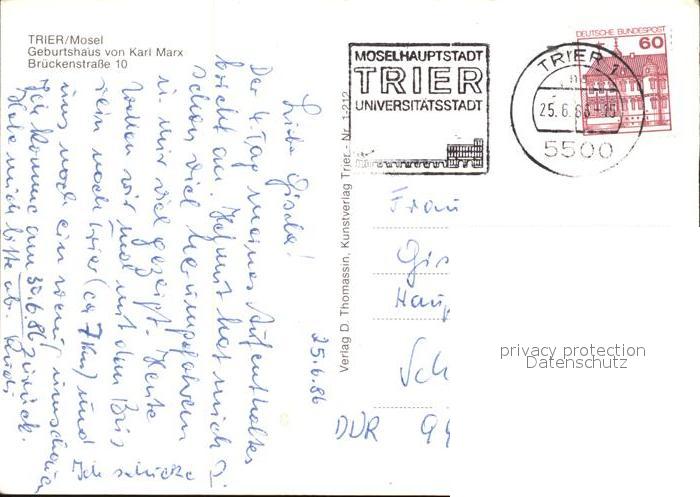 TRIER/Mosel
Geburtshaus von Karl Marx
Brückenstraße 10
MOSELHAUPTSTADT
TRIER
UNIVERSITÄTSSTADT
DEUTSCHE BUNDESPOST
60
TRIER 1
25.6.86
5500
Verlag D. Thomassin, Kunstverlag Trier - Nr. 1-212
25.6.86
Liebe Gisela!
Der 4. Tag meines Aufenthaltes
bricht an. Helmut hat mich
schon viel herumgefahren
u. mir viel gezeigt. Heute
wollen wir mal mit dem Bus
rein nach Trier (ca 7 km) und
uns noch ein wenig umschauen
Ich komme am 30.6.86 zurück.
Hole mich bitte ab. Rudi
Ich schicke
Frau
Gis
Haup
Sch
DDR 94
privacy protection
Datenschutz